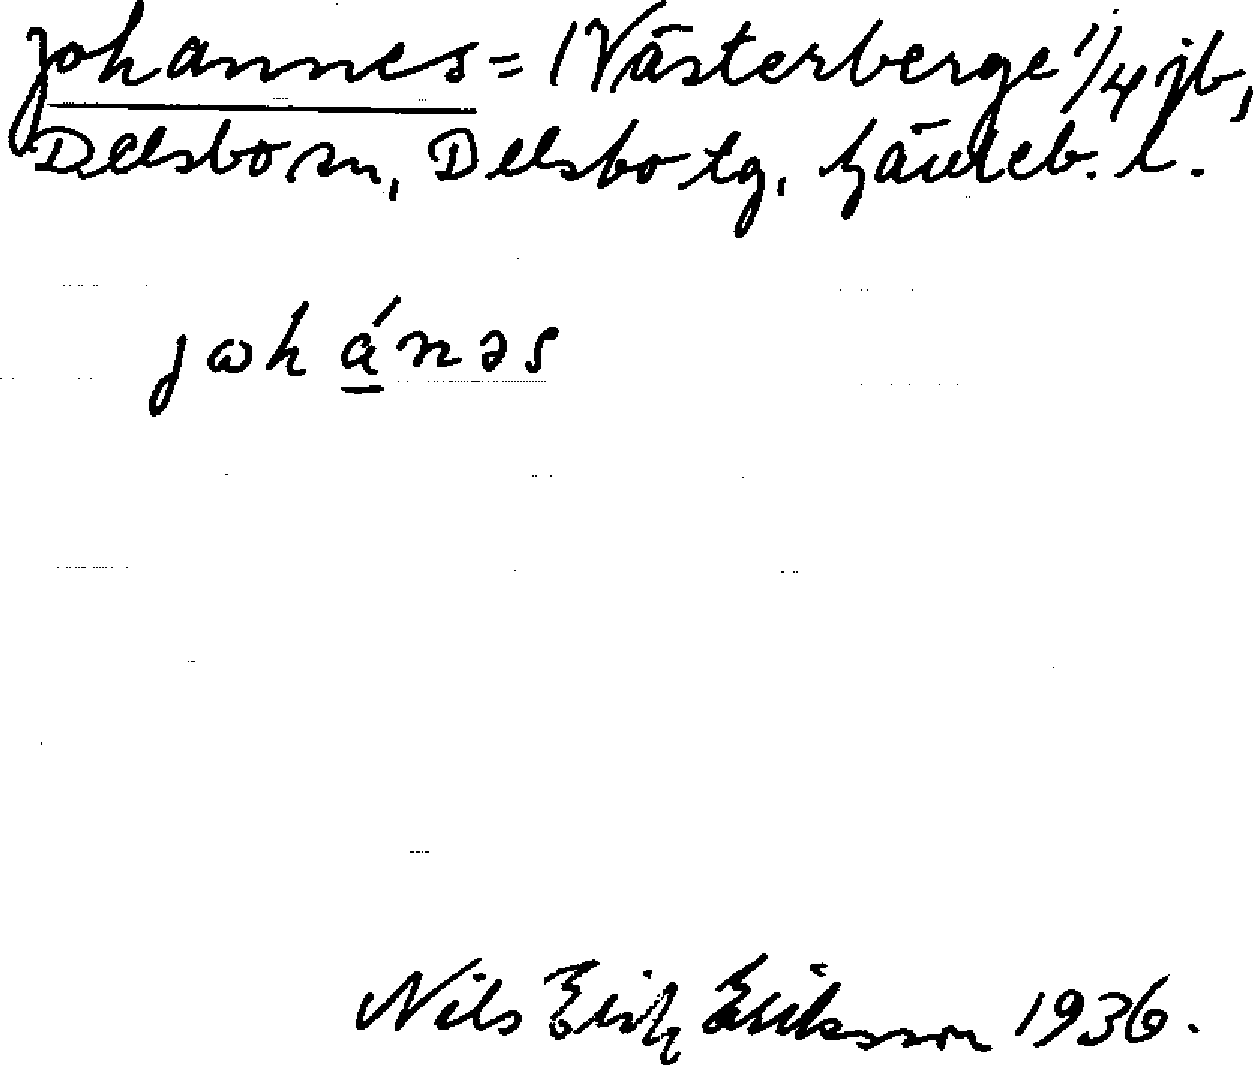 Johannes = (Västerberge 1/4 jb,
Delsbo sn, Delsbo tg, Gävleb. l.
johánəs
Nils Erik Eriksson 1936.